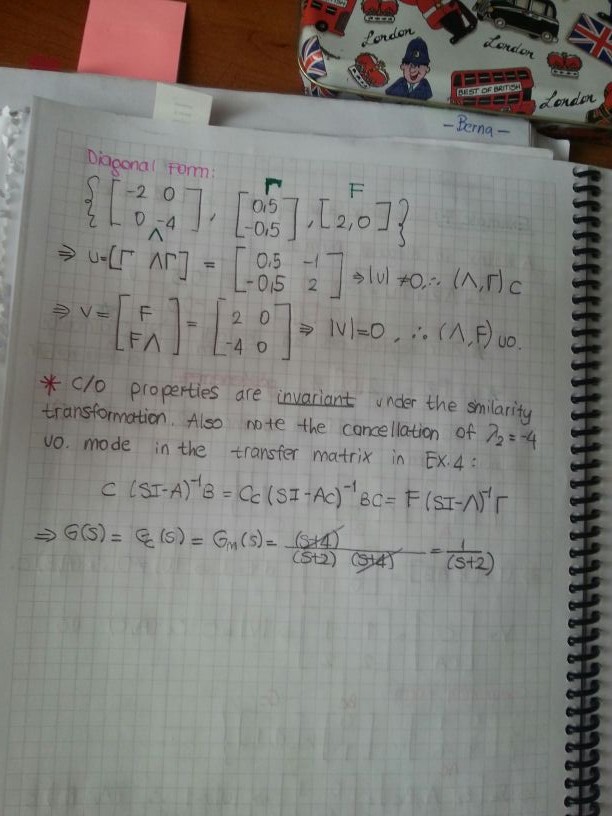 London
London
BEST OF BRITISH
London
- Berna -
Diagonal Form:
{ [ -2 0 ; 0 -4 ] Λ , [ 0,5 ; -0,5 ] Γ , [ 2,0 ] F }
⇒ U=[Γ ΛΓ] = [ 0,5 -1 ; -0,5 2 ] ⇒ |U| ≠0, ∴ (Λ,Γ) C
⇒ V= [ F ; FΛ ] = [ 2 0 ; -4 0 ] ⇒ |V|=0, ∴ (Λ,F) uo.
* C/O properties are invariant under the smilarity
transformation. Also note the concellation of λ₂=-4
uo. mode in the transfer matrix in EX.4:
C (SI-A)⁻¹B = Cc (SI-Ac)⁻¹ BC = F (SI-Λ)⁻¹ Γ
⇒ G(S) = Gc(S) = Gm(S) = (S+4) / (S+2) (S+4) = 1 / (S+2)